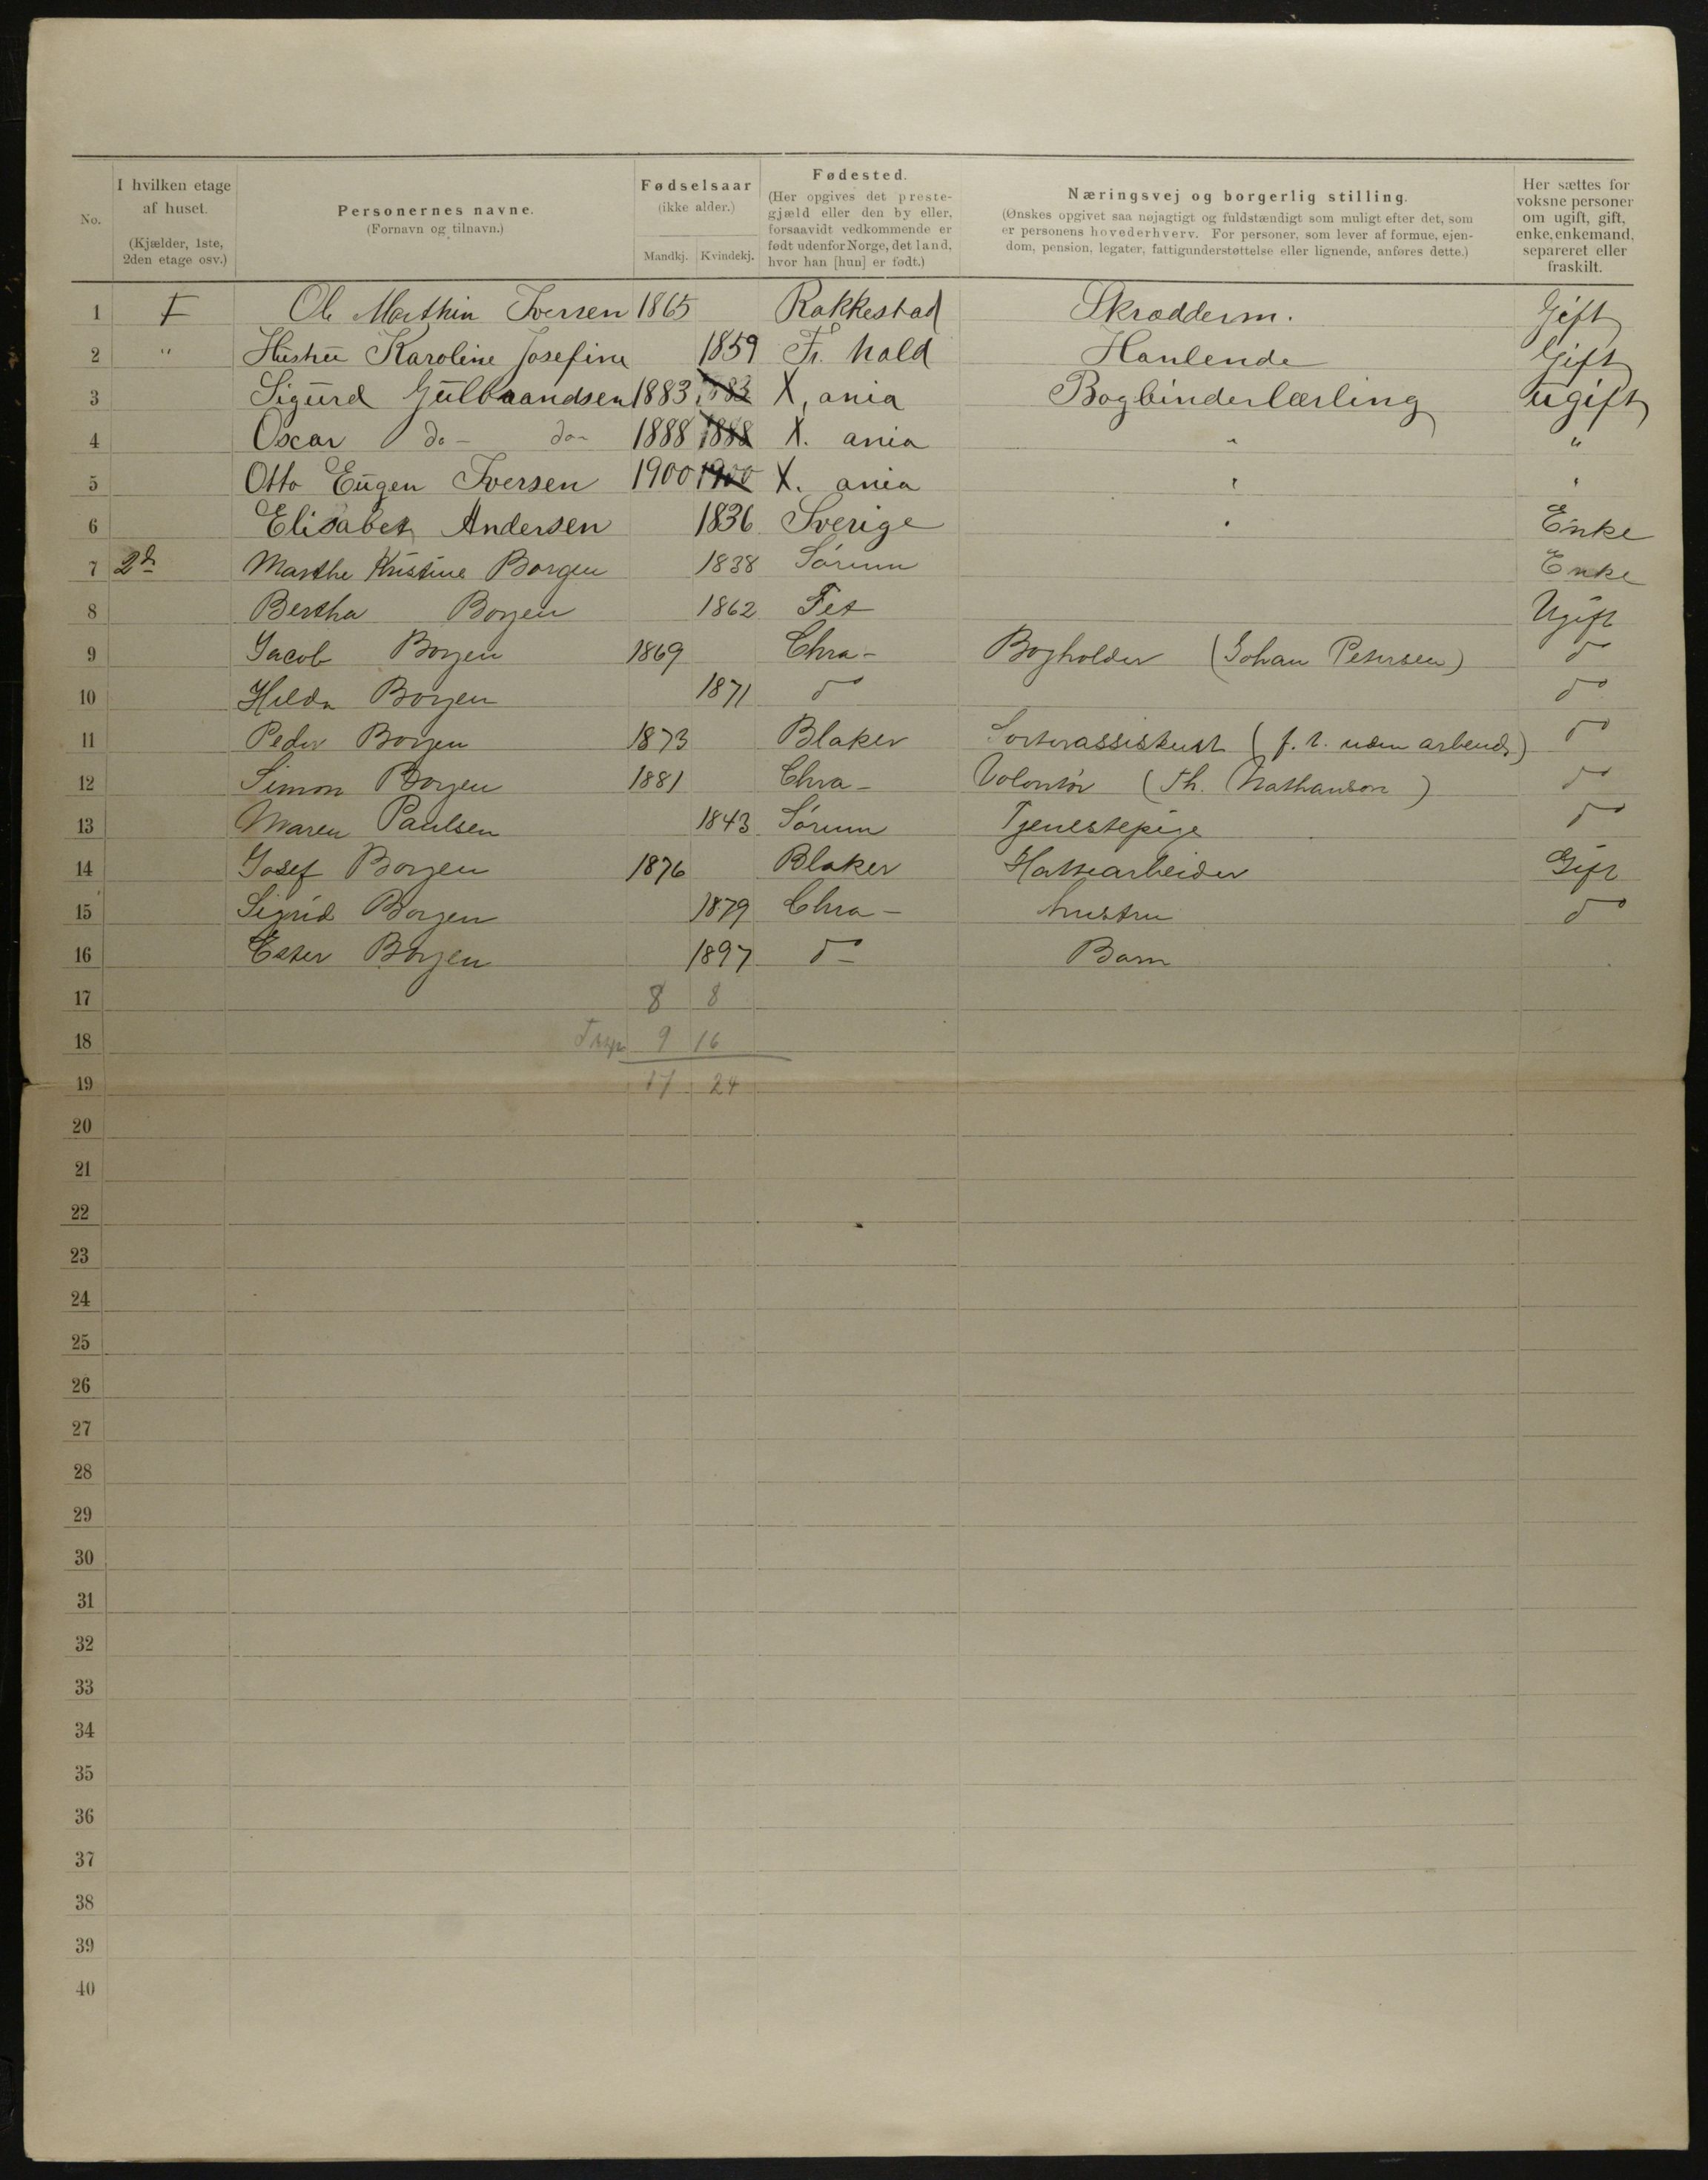 No.
I hvilken etage af huset. (Kjælder, 1ste, 2den etage osv.)
Personernes navne. (Fornavn og tilnavn.)
Fødselsaar (ikke alder.) Mandkj. Kvindekj.
Fødested. (Her opgives det prestegjæld eller den by eller, forsaavidt vedkommende er født udenfor Norge, det land, hvor han [hun] er født.)
Næringsvej og borgerlig stilling. (Ønskes opgivet saa nøjagtigt og fuldstændigt som muligt efter det, som er personens hovederhverv. For personer, som lever af formue, ejendom, pension, legater, fattigunderstøttelse eller lignende, anføres dette.)
Her sættes for voksne personer om ugift, gift, enke, enkemand, separeret eller fraskilt.
1 I Ole Marthin Iversen 1865 Rakkestad Skrædderm. Gift
2 " Hustru Karoline Josefine 1859 Fr. hald Gift
3 Sigurd Gulbrandsen 1883 1883 X,ania Bogbinderlærling ugift
4 Oscar do- do- 1888 1888 X. ania " "
5 Otto Eugen Iversen 1900 1900 X. ania " "
6 Elisabet Andersen 1836 Sverige " Enke
7 2d Marthe Kristine Borgen 1838 Sørum Enke
8 Bertha Borgen 1862 Fet Ugift
9 Jacob Borgen 1869 Chra- Bogholder (Johan Petersen) do
10 Hilda Borgen 1871 do do
11 Peder Borgen 1873 Blaker (f. t. uden arbeide) do
12 Simon Borgen 1881 Chra- Volontør (Th. Nathanson) do
13 Maren Paulsen 1843 Sørum Tjenestepige do
14 Josef Borgen 1876 Blaker Hattearbeider Gift
15 Sigrid Borgen 1879 Chra- hustru do
16 Ester Borgen 1897 do- Barn
17 8 8
18 9 16
19 17 24
20
21
22
23
24
25
26
27
28
29
30
31
32
33
34
35
36
37
38
39
40